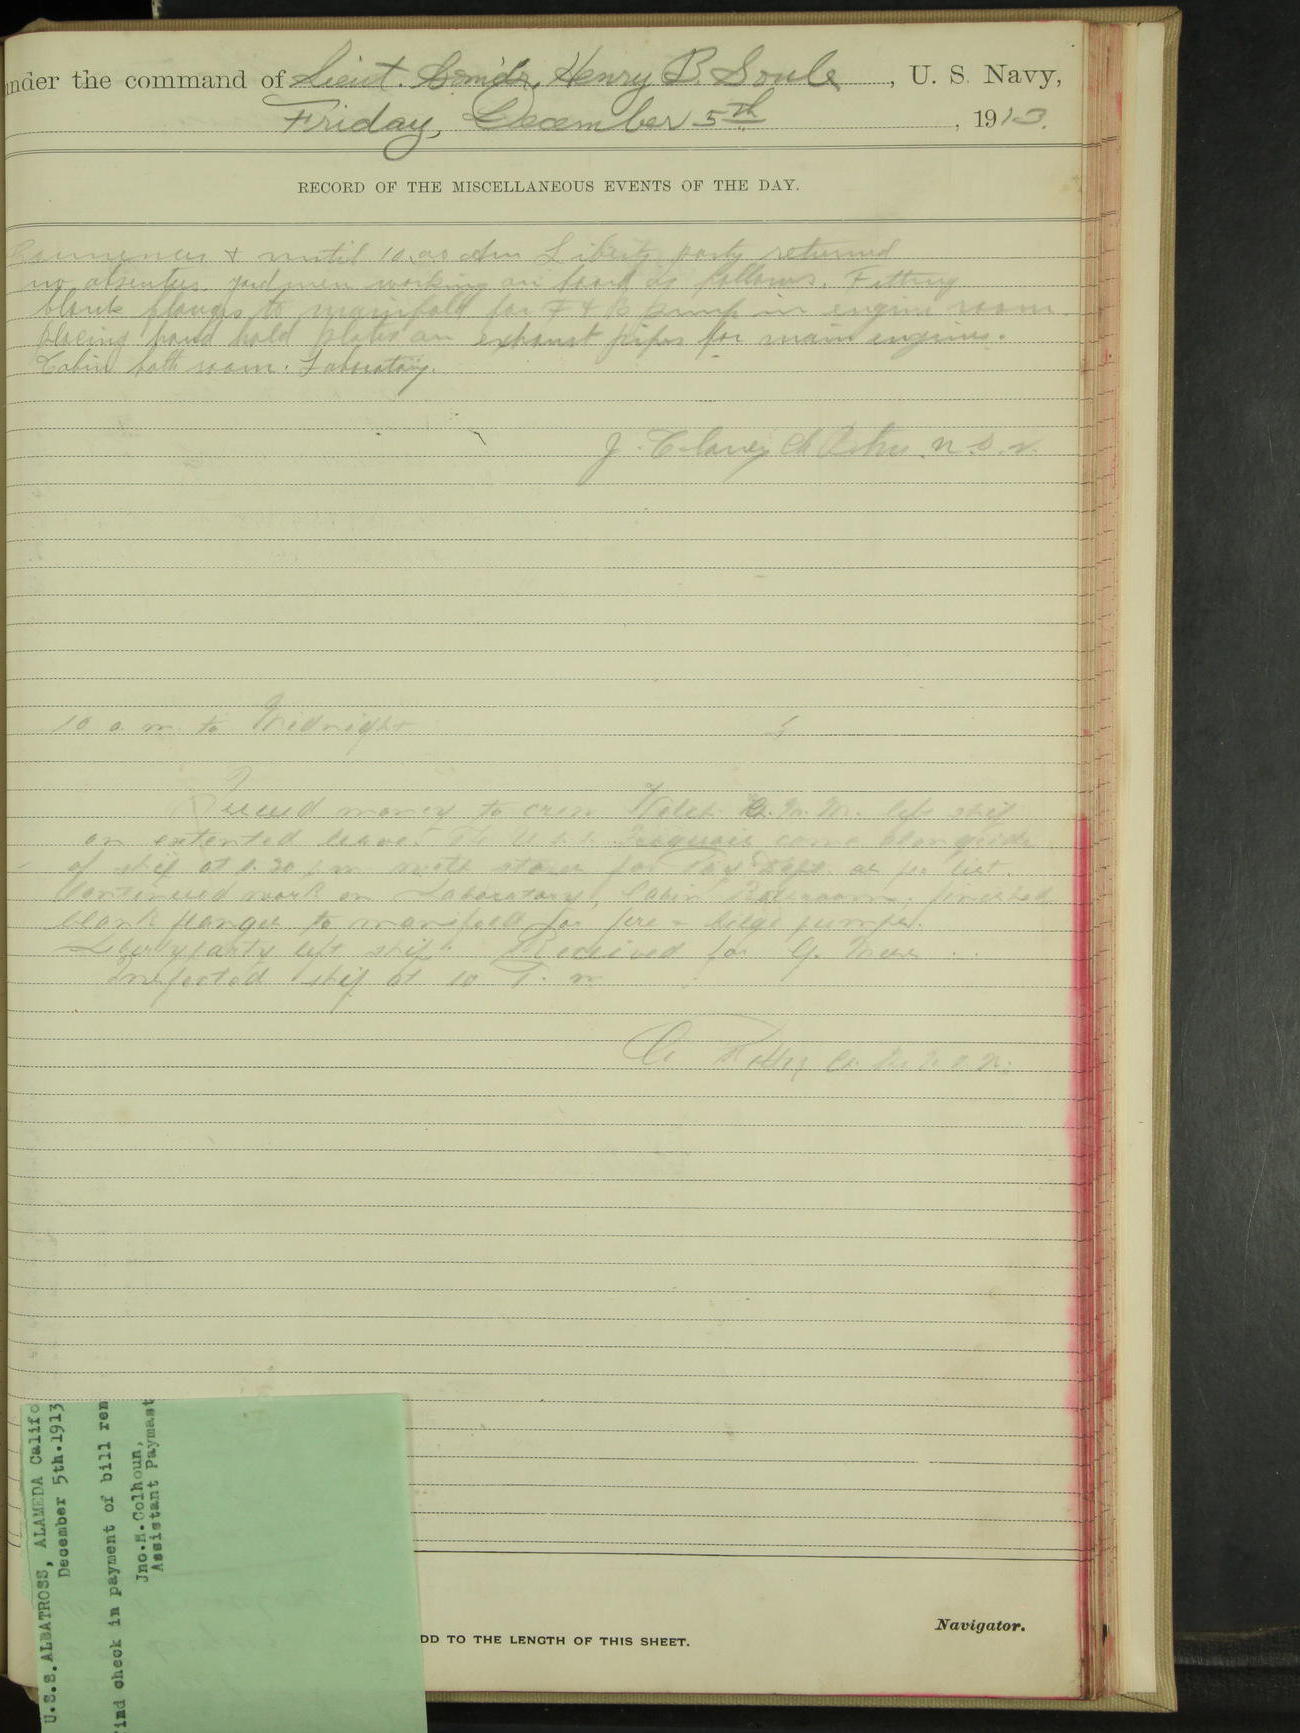 under the command of Lieut. Comdr. Henry B. Soule, U. S. Navy,
Friday, December 5th, 1913.
RECORD OF THE MISCELLANEOUS EVENTS OF THE DAY.
& until 10.00 Am Liberty party returned
no absentees. yard men working on board as follows. Fitting
blank flanges to manifold for F & B Pump in engine room.
placing hand hold plates on exhaust pipes for main engines.
Cabin bath room. Laboratory.
J.
10 a. m. to Midnight
money to crew left ship
on extended leave. The U.S.S. Iroquois came alongside
of ship at p m with stores for Pay Dept. as per list.
Continued work on Laboratory, Cabin Bathroom, finished
blank flanges to manifold for fire & bilge pumps.
Liberty party left ship. Received for G. Mess
Inspected ship at 10 P. m
U.S.S. ALBATROSS, ALAMEDA Califo
December 5th.1913
ind check in payment of bill ren
Jno.H.Colhoun,
Assistant Paymast
DD TO THE LENGTH OF THIS SHEET.
Navigator.